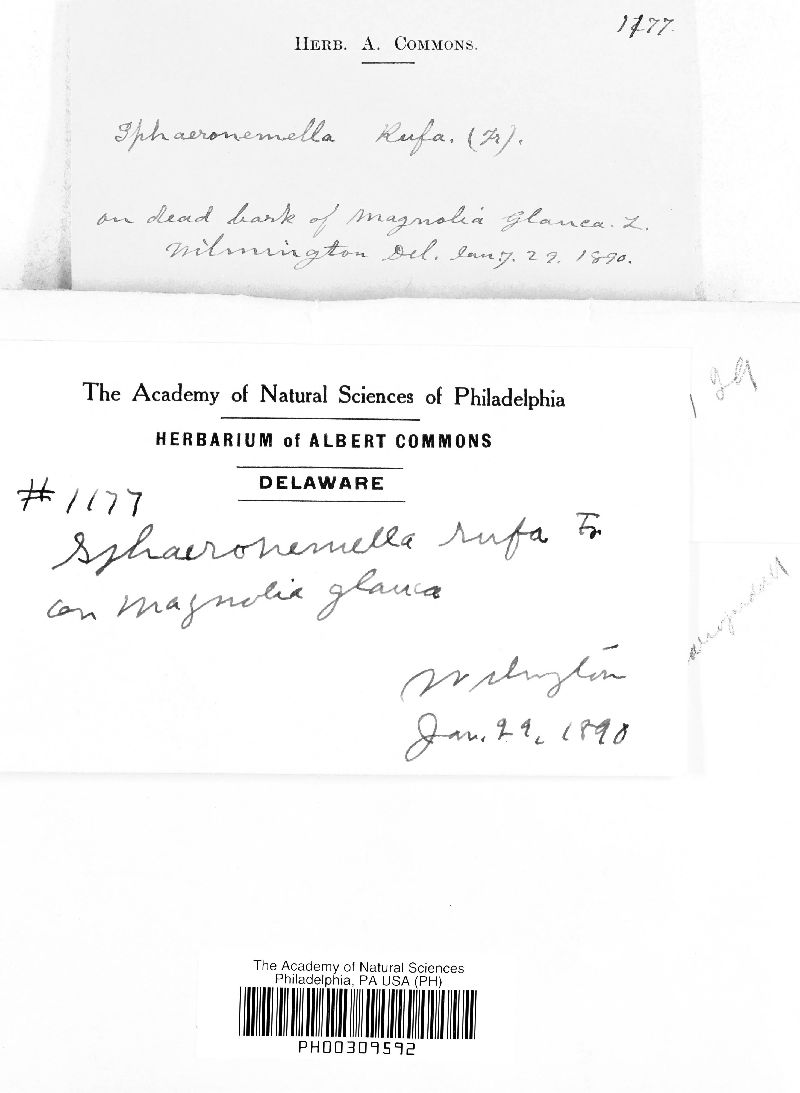 1177.
HERB. A. COMMONS.
Sphaeronemella Rufa. (Fr).
on dead bark of Magnolia Glauca. L.
Wilmington Del. Jany. 29. 1890.
The Academy of Natural Sciences of Philadelphia
HERBARIUM of ALBERT COMMONS
DELAWARE
#1177
Sphaeronemella rufa Fr
on Magnolia glauca
Wilmington
Jan. 29, 1890
The Academy of Natural Sciences
Philadelphia, PA USA (PH)
PH00309592